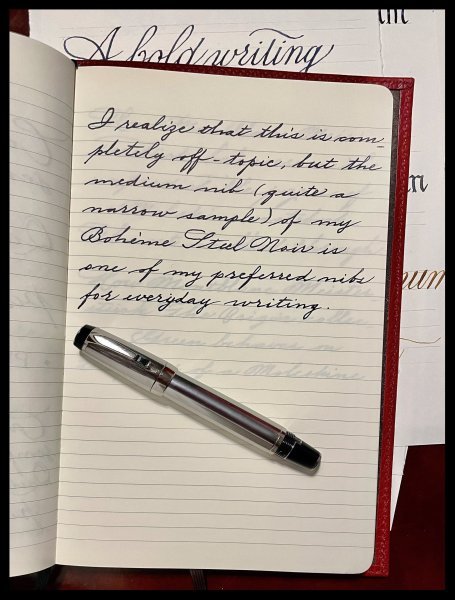 A bold writing
I realize that this is com-
pletely off-topic, but the
medium nib (quite a
narrow sample) of my
Bohème Steel Noir is
one of my preferred nibs
for everyday writing.